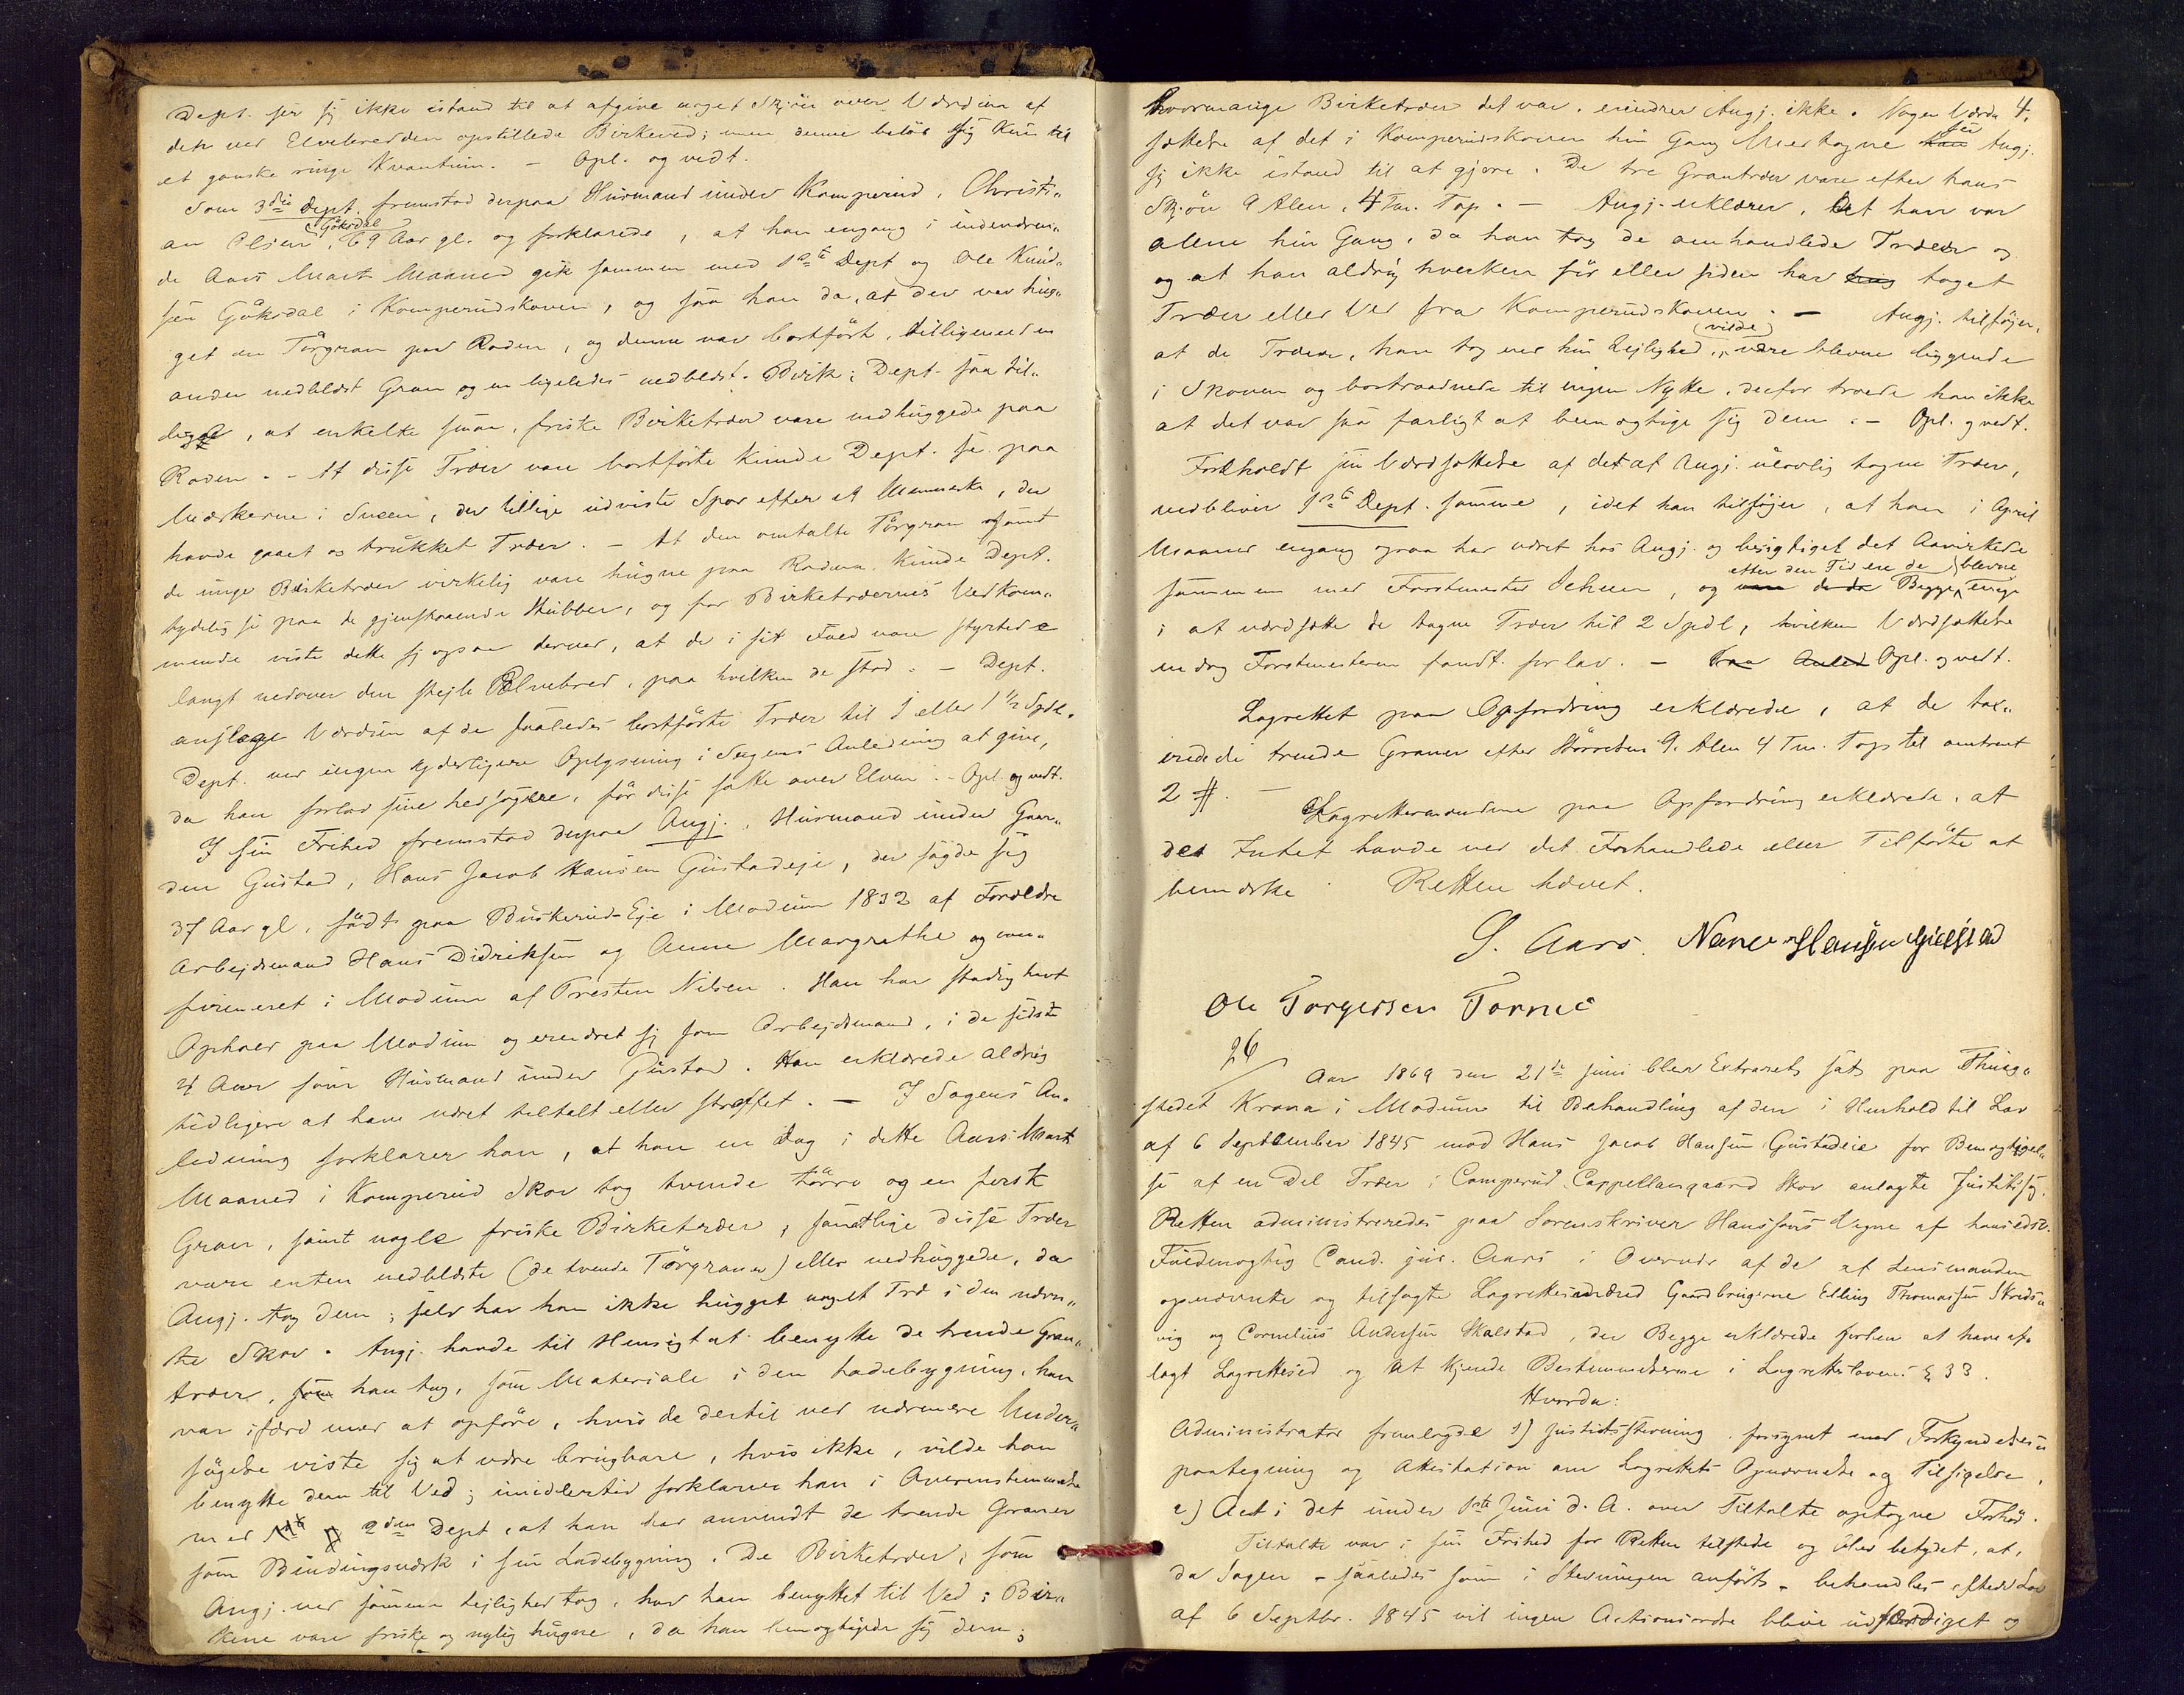 Dept. ser sig ikke istand til at afgive noget Skjøn over Værdien af
den ved Elvebredden opstillede Birkeved; men denne beløb sig kun til
et ganske ringe Kvantum. – Opl. og vedt.
Som 3die Dept. fremstod derpaa Husmand under Komperud, Christi„
an Olsen Göksdal, 69 Aar gl. og forklarede, at han engang i indeværen„
de Aars Marts Maaned gik sammen med 1ste Dept og Ole Knud„
sen Göksdal i Komperudskoven, og saa han da, at der var hug„
get en Törgran paa Roden, og denne var bortfört, tilligemed en
anden nedblæst Gran og en ligeledes nedblæst Birk; Dept. saa til„
lige, at enkelte smaa, friske Birketræer vare nedhuggede paa
Roden. – At disse Træer vare bortförte kunde Dept. se paa
Mærkerne i Sneen, der tillige udviste Spor efter et Menneske, der
havde gaaet og trukket Træer. – At den omtalte Törgran samt
de unge Birketræer virkelig vare hugne paa Roden, kunde Dept.
tydelig se paa de gjenstaaende Stubber, og for Birketræernes Vedkom„
mende viste dette sig ogsaa derved, at de i sit Fald vare styrtede
langt nedover den steile Elvebred, paa hvilken de stod. – Dept.
anslog Værdien af de saaledes bortförte Træer til 1 eller 1 1/2 Spdl.
Dept. ved ingen yderligere Oplysning i Sagens Anledning at give,
da han forlod sine Ledsagere, för disse satte over Elven. – Opl. og vedt.
I sin Frihed fremstod derpaa Angj., Husmand under Gaar„
den Gustad, Hans Jacob Hansen Gustadeje, der sagde sig
37 Aar gl., födt paa Buskerud-Eje i Modum 1832 af Forældre
Arbejdsmand Hans Didriksen og Anne Margrethe og con„
firmeret i Modum af Presten Nilsen. Han har stadig havt
Ophold paa Modum og ernæret sig som Arbejdsmand, i de sidste
4 Aar som Husmand under Gustad. Han erklærede aldrig
tidligere at have været tiltalt eller straffet. – I Sagens An„
ledning forklarer han, at han en Dag i dette Aars Marts
Maaned i Komperud Skov tog tvende törre og en fersk
Gran, samt nogle friske Birketræer, samtlige disse Træer
vare enten nedblæste (de tvende Törgraner) eller nedhuggede, da
Angj. tog dem; selv har han ikke hugget noget Træ i den nævn„
te Skov. Angj. havde til Hensigt at benytte de trende Gran„
træer, som han tog, som Materiale i den Ladebygning, han
var ifærd med at opföre, hvis de dertil ved nærmere Under„
sögelse viste sig at være brugbare, hvis ikke, vilde han
benytte dem til Ved; imidlertid forklarer han i Overensstemmelse
med 2den Dept, at han har anvendt de trende Graner
som Bindingsværk i sin Ladebygning. De Birketræer, som
Angj. ved samme Lejlighed tog, har han benyttet til Ved; Bir„
kene vare friske og nylig hugne, da han bemægtigede sig dem;
hvormange Birketræer det var, erindrer Angj. ikke. Nogen Værdi 4.
sættelse af det i Komperudskoven hin Gang Medtagne ser Angj.
sig ikke istand til at gjøre. De tre Grantræer vare efter hans
Skjön 9 Alen, 4 Tm. Top. – Angj. erklærer, at han var
alene hin Gang, da han tog de omhandlede Træer og
og at han aldrig hverken för eller siden har taget
Træer eller Ved fra Komperudskoven. – Angj. tilföjer,
at de Træer, han tog ved hin Lejlighed, (vilde) være blevne liggende
i Skoven og bortraadnede til ingen Nytte, derfor troede han ikke
at det var saa farligt at bemægtige sig dem. – Opl. og vedt.
Foreholdt sin Værdsættelse af det af Angj. ulovlig tagne Træer,
vedbliver 1ste Dept. samme, idet han tilföjer, at han i April
Maaned engang ogsaa har været hos Angj. og besigtiget det Aavirkede
sammen med Forstmester Schuen, og efter den Tid ere de Begge blevne enige
i at værdsætte de tagne Træer til 2 Spdl, hvilken Værdsættelse
endog Forstmesteren fandt for lav. – Opl. og vedt.
Lagrettet paa Opfordring erklærede, at de tax„
erede de trende Graner efter Störrelsen 9 Alen 4 Tm. Top til omtrent
2 #. – Lagrettemændene paa Opfordring erklærede, at
de Intet havde ved det Forhandlede eller Tilförte at
bemærke. Retten hævet.
S. Aars. Hansen Gulstad
Ole Torgersen
26
Aar 1869 den 21de Juni blev Extraret sat paa Thing„
stedet Krona i Modum til Behandling af den i Henhold til Lov
af 6 September 1845 mod Hans Jacob Hansen Gustadeie for Bemægtigel„
se af en Del Træer i Komperud Cappellangaard Skov anlagte Justitssag.
Retten administreredes paa Sorenskriver Hanssons Vegne af hans edsv.
Fuldmægtig Cand. jur. Aars i Overvær af de af Lensmanden
opnævnte og tilsagte Lagrettesmænd Gaardbrugerne Elling Thomassen Skreds„
vig og Cornelius Andersen Skalstad, der Begge erklærede forhen at have af„
lagt Lagrettesed og at kjende Bestemmelserne i Lagretteloven § 33.
Hvorda:
Administrator fremlagde 1) Justitsstevning forsynet med Forkyndelses„
paategning og Attestation om Lagrettets Opnævnelse og Tilsigelse,
2) Act i det under 1ste Juni d. A. over Tiltalte optagne Forhör.
Tiltalte var i sin Frihed for Retten tilstede og blev betydet, at,
da Sagen – saaledes som i Stevningen anfört – behandles efter Lov
af 6 Septbr. 1845 vil ingen Actionsordre blive udfærdiget og